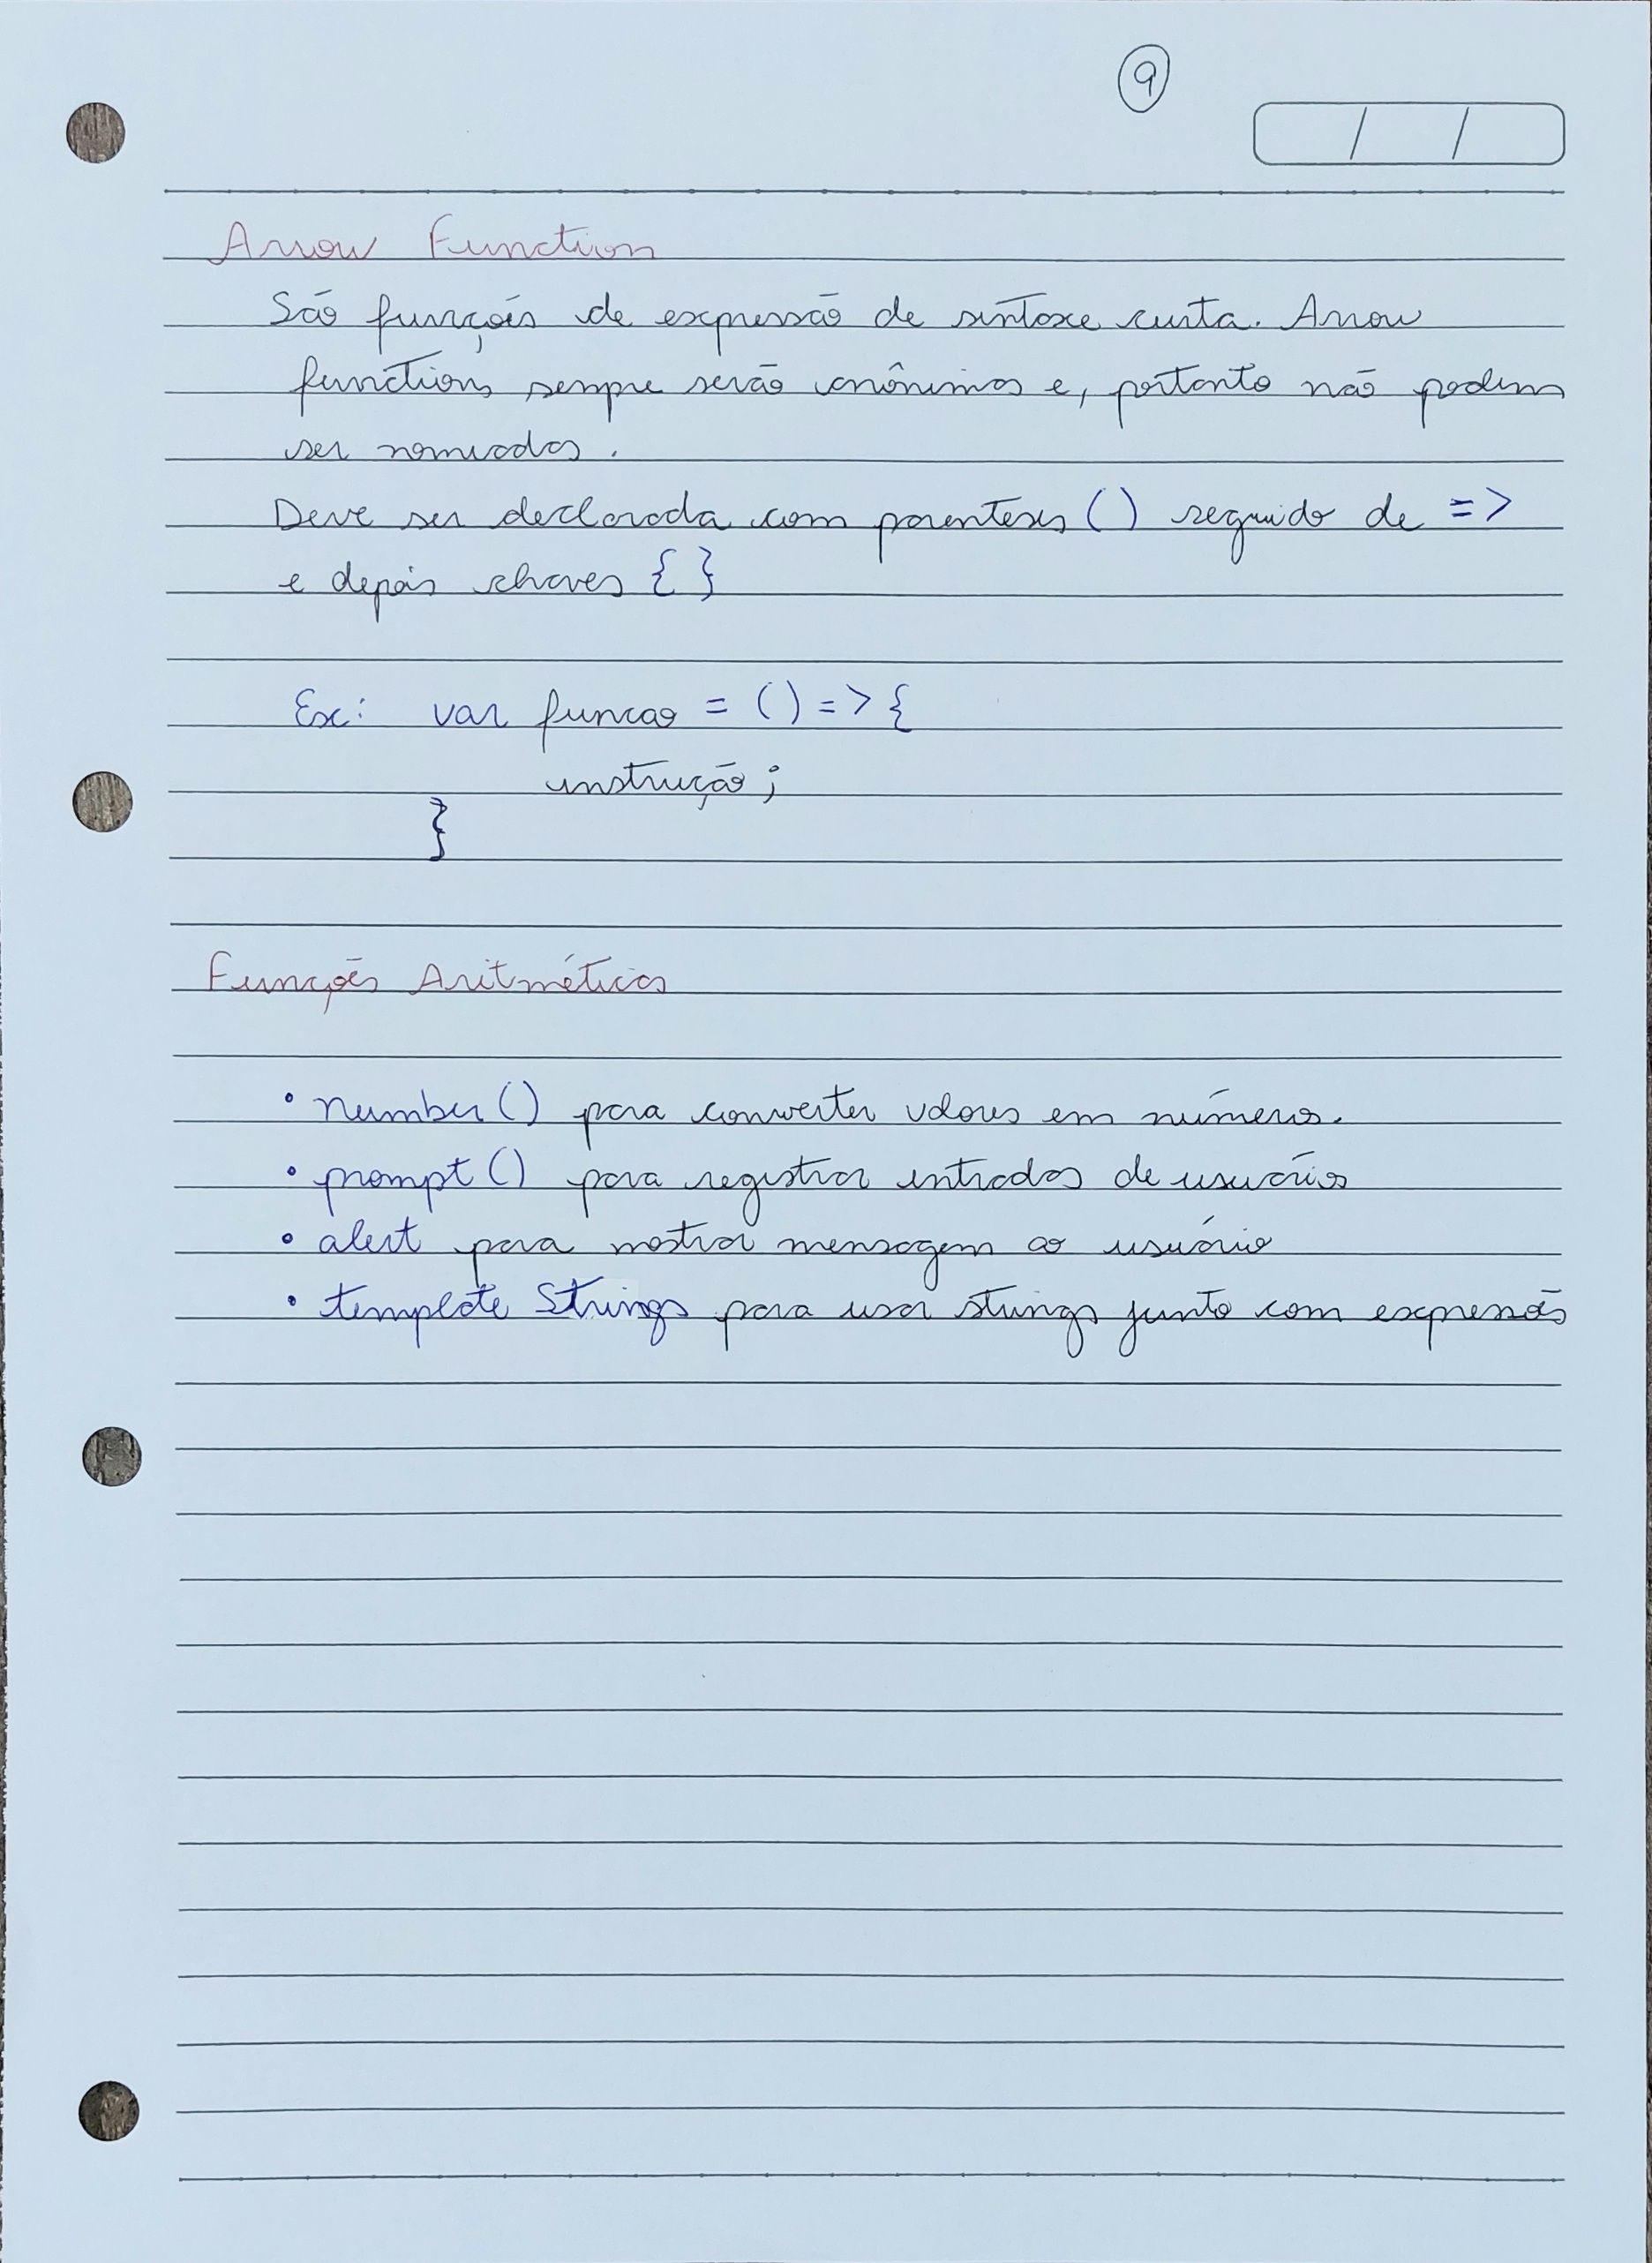 9
/ /
Arrow Function
São funções de expressão de sintaxe curta. Arrow
functions sempre serão anônimas e, portanto não podem
ser nomeadas.
Deve ser declarada com parenteses () seguido de =>
e depois chaves { }
Ex: var funcao = () => {
instrução;
}
Funções Aritméticas
• number() para converter valores em números.
• prompt() para registrar entradas de usuários
• alert para mostrar mensagem ao usuário
• template Strings para usar strings junto com expressões